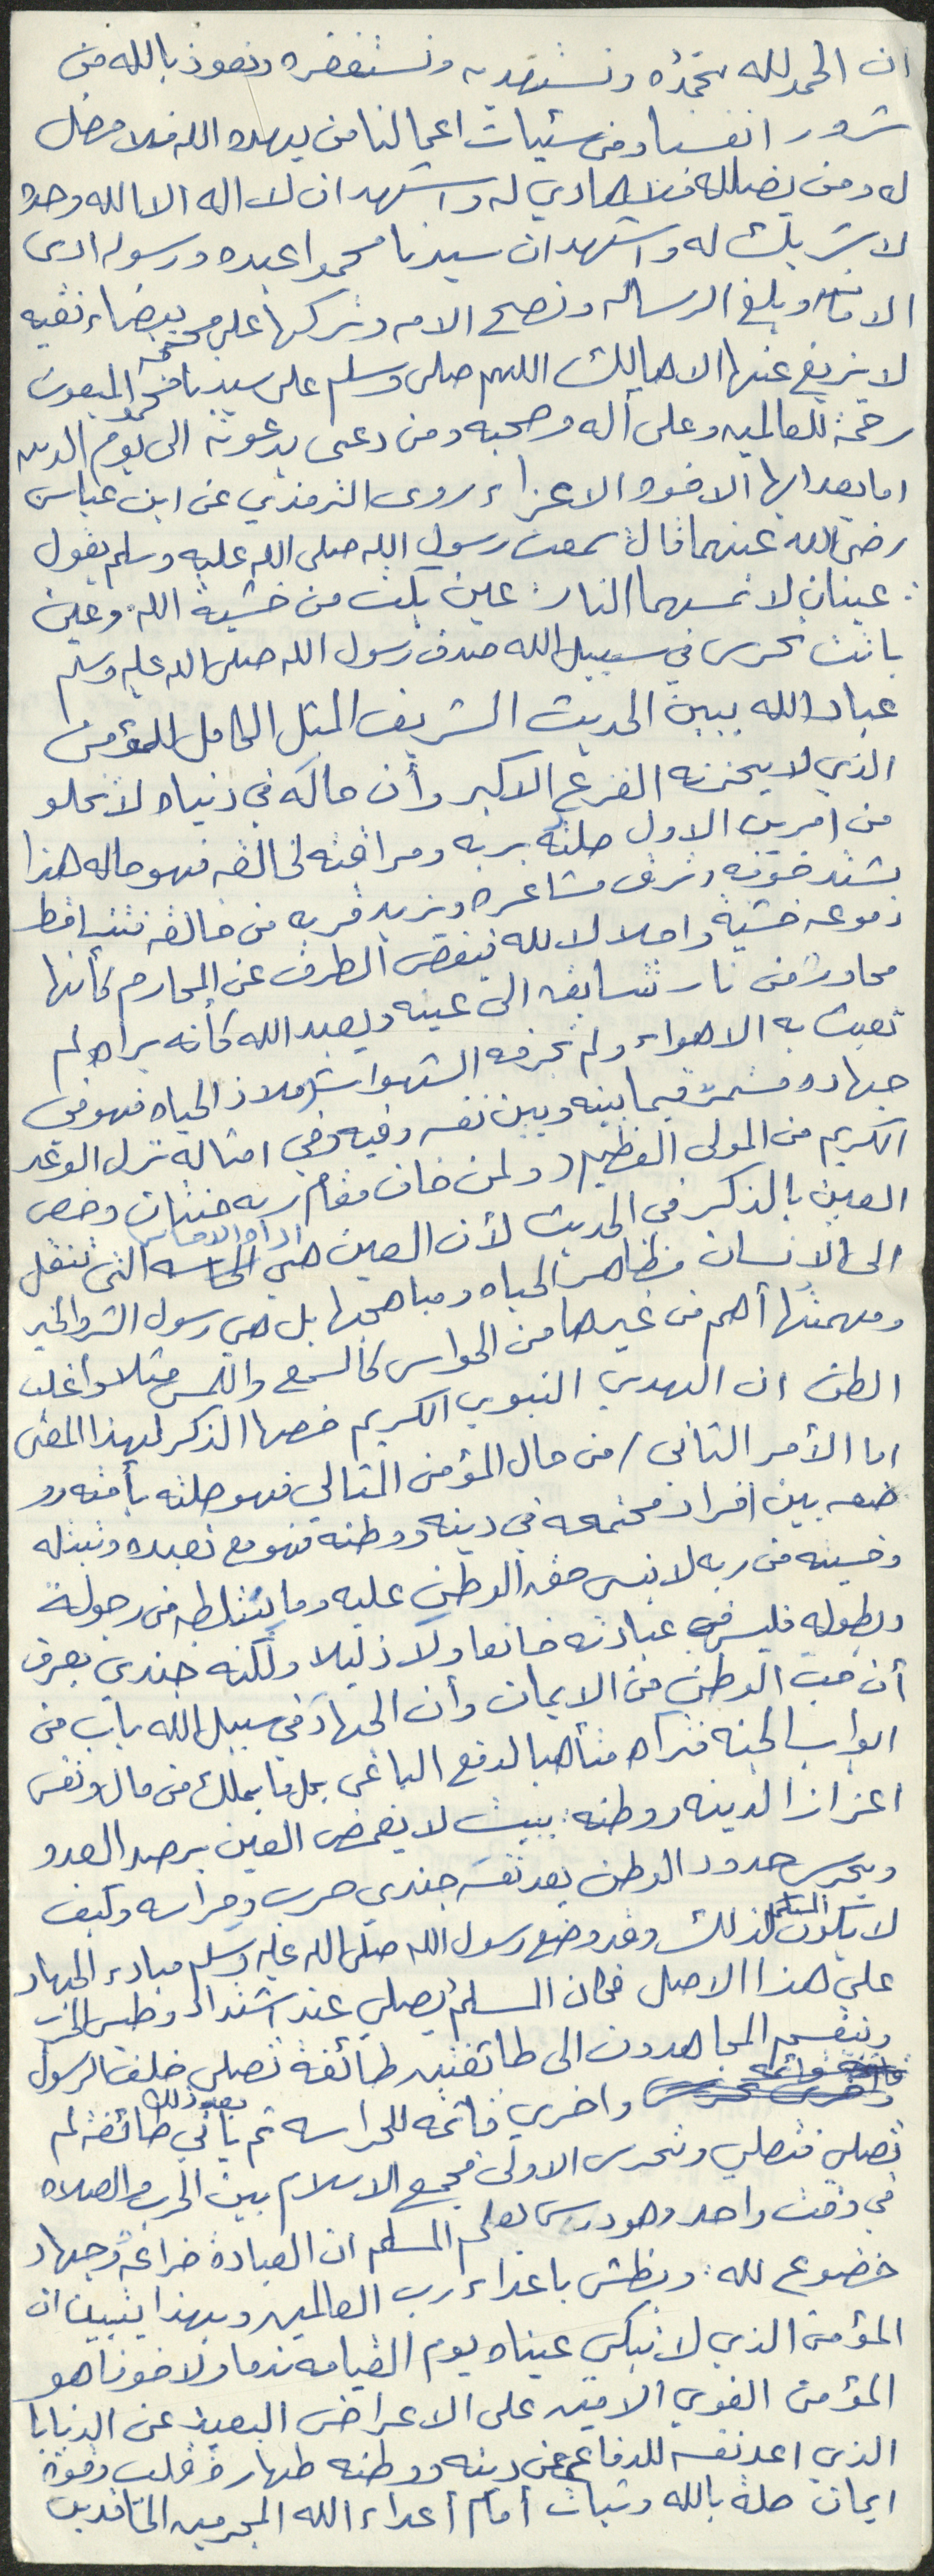 ان الحمد لله نحمده ونستهديه ونستغفره ونعوذ بالله من
شرور انفسنا ومن سئيات اعمالنا من يهده الله فلا مضل
له ومن يضلله فلا هادي له واشهد ان لا اله الا الله وحده
لا شريك له واشهد ان سيدنا محمدا عبده ورسوله ادى
الامانه وبلغ الرساله ونصح الامه وتركها على محجة بيضاء نقيه
لا يزيغ عنها الا هالك اللهم صلى وسلم على سيدنا محمد المبعوث
رحمة للعالمين وعلى آله وصحبه ومن دعى بدعوته الى يوم الدين
اما بعد ايها الاخوه الاعزاء روى الترمذي عن ابن عباس
رضي الله عنهما قال سمعت رسول الله صلى الله عليه وسلم يقول
: عينان لا تمسهما النار: عين بكت من خشية الله وعين
باتت تحرس في سبيل الله صدق رسول الله صلى الله عليه وسلم
عباد الله يبين الحديث الشريف المثل الكامل للمؤمن
الذي لا يحزنه الفزع الاكبر وأن حاله في دنياه لا تخلو
من امرين الاول صلته بربه ومراقبته لخالقه فهو حاله هذا
يشتد خوفه وترق مشاعره ويزيد قربه من خالقه فتتساقط
دموعه خشية واجلالا لله فيغض الطرف عن المحارم كأنها
محادة من نار تتسابق الى عينه ويعبد الله كأنه يراه لم
تعبث به الاهواء ولم تجرفه الشهوات وملاذ الحياه فهو في
جهاد مستمر فيما بينه وبين نفسه وفيه وفي امثاله نزل الوعد
الكريم من المولى العظيم (ولمن خاف مقام ربه جنتان وخص
العين بالذكر في الحديث لأن العين هي اداة الاحساس التي تنقل
الى الانسان مظاهر الحياه ومباهجها بل هي رسول الشر والخير
ومهمتها أهم من غيرها من الحواس كالسمع واللمس مثلا وأغلب
الظن ان الهدي النبوي الكريم خصها الذكر لهذا المعنى
اما الأمر الثاني / من حال المؤمن المثالي فهو صلته بأمته وو
ضعه بين افراد مجتمعه في دينه ووطنه فهو مع تعبده وتبتله
وخشيته من ربه لا ينسى حق الوطن عليه وما يتطلبه من رجولة
وبطوله فليس في عبادته خانعا ولا ذليلا ولكنه جندي يعرف
أن حب الوطن من الايمان وأن الجهاد في سبيل الله باب من
ابواب الجنه فتراه متأهبا لدفع الباغي بكل ما يملك من مال ونفس
اعزازا لدينه ووطنه: يبيت لا يغمض العين يرصد العدو
ويحرس حدود الوطن يعد نفسه جندي حرب وحراسه وكيف
لا يكون المسلم كذلك وقد وضع رسول الله صلى الله عليه وسلم مبادء الجهاد
على هذا الاصل فكان المسلم يصلي عند اشتداد وطيس الحرب
وينقسم المجاهدون الى طائفتين طائفة تصلي خلف الرسول
واخرى قائمه للحراسه ثم يأتي بعد ذلك طائفة لم
تصلي فتصلي وتحرس الاولى فجمع الاسلام بين الحرب والصلاه
في وقت واحد وهو درس يعلم المسلم ان العبادة ضراعة وجهاد
خضوع لله: وبطش باعداء رب العالمين وبهذا يتبين ان
المؤمن الذي لا تبكي عيناه يوم القيامه ندما ولا خوفا هو
المؤمن القوي الامين على الاعراض البعيد عن الدنايا
الذي اعد نفسه للدفاع عن دينه ووطنه طهارة قلب وقوة
ايمان صلة بالله وثبات أمام أعداء الله المجرمين الحاقدين